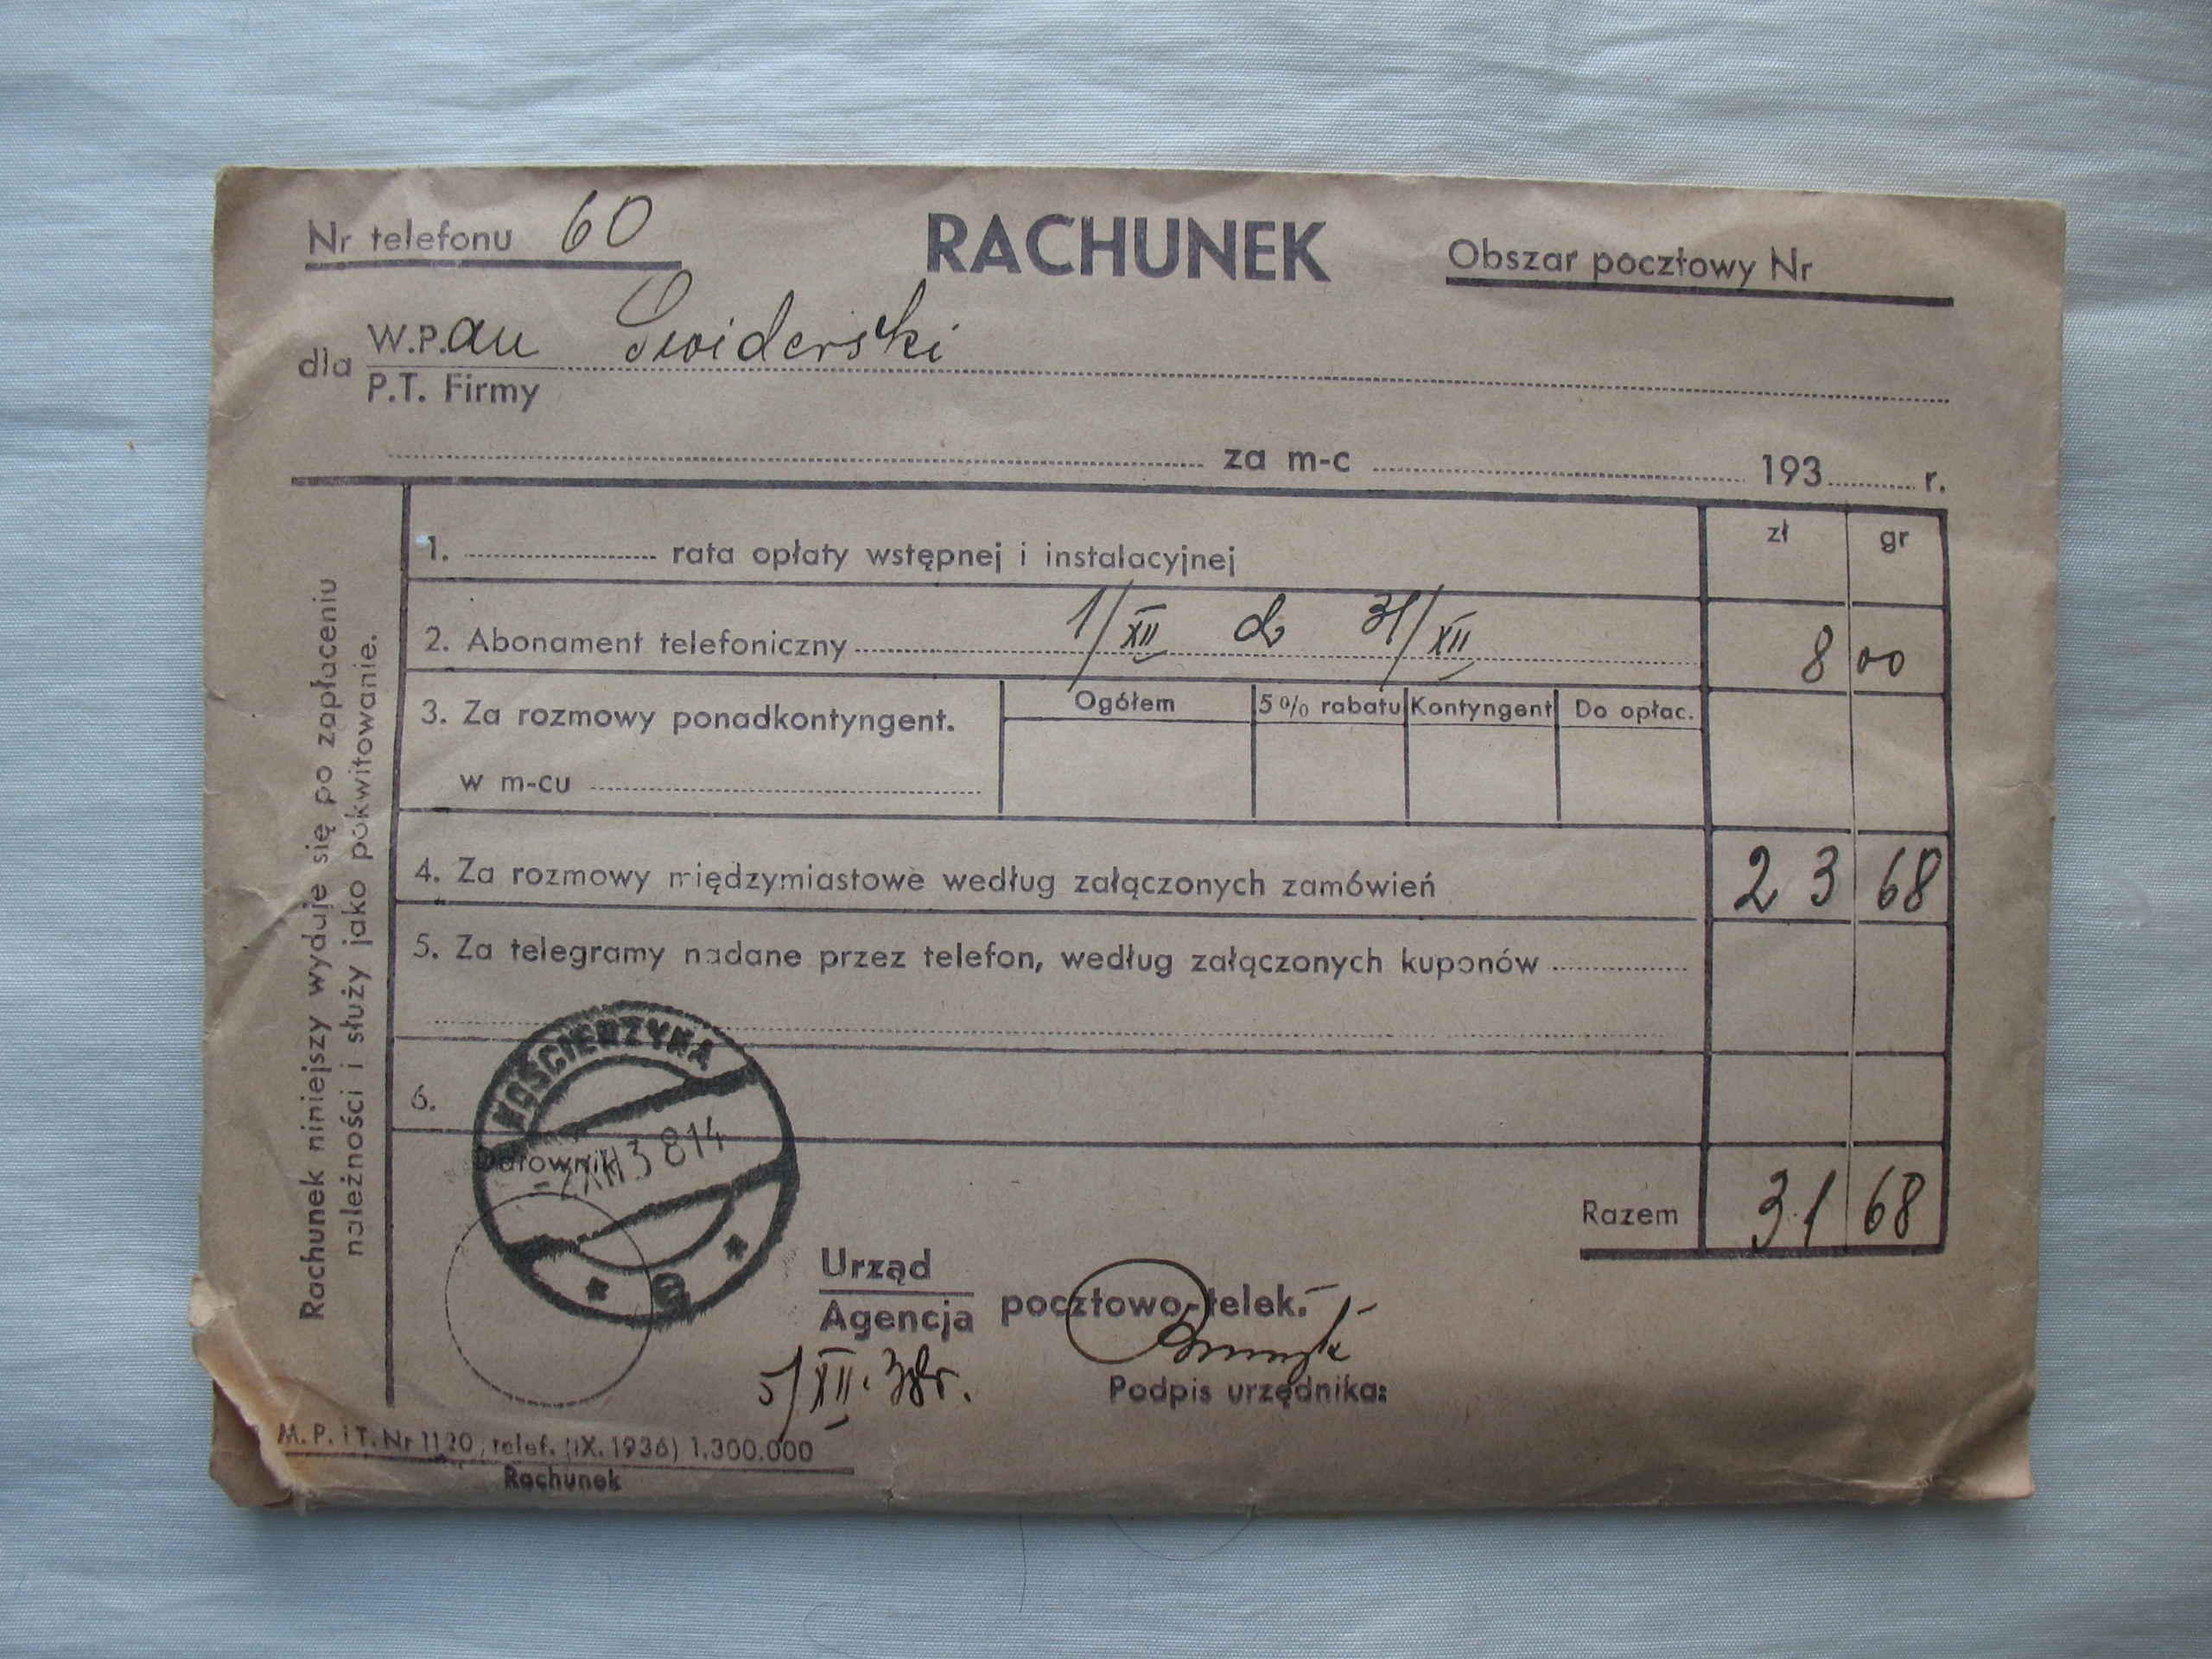 Nr telefonu 60
RACHUNEK
Obszar pocztowy Nr
dla W.P.an Świderski
P.T. Firmy
za m-c 193 r.
zł gr
1. rata opłaty wstępnej i instalacyjnej
2. Abonament telefoniczny 1/XII do 31/XII 8 00
3. Za rozmowy ponadkontyngent. Ogółem 5% rabatu Kontyngent Do opłac.
w m-cu
4. Za rozmowy międzymiastowe według załączonych zamówień 23 68
5. Za telegramy nadane przez telefon, według załączonych kuponów
6.
Razem 31 68
Rachunek niniejszy wydaje się po zapłaceniu
należności i służy jako pokwitowanie.
KOŚCIERZYNA
Datownik
Urząd
Agencja pocztowo-telek.
5/XII.38r.
Podpis urzędnika:
M.P. i T. Nr 1120, telef. (IX. 1936) 1.300.000
Rachunek